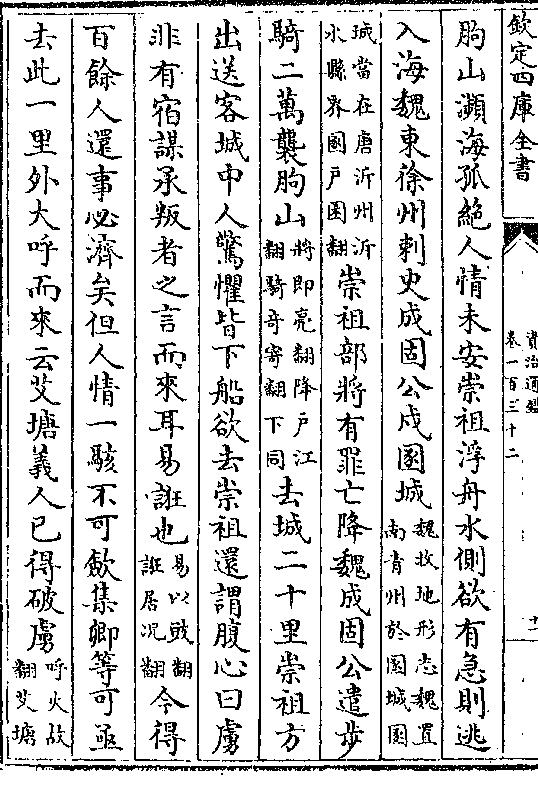 欽定四庫全書
資治通鑑
卷一百三十二
十一
朐山瀕海孤絶人情未安崇祖浮舟水側欲有急則逃
入海魏東徐州刺史成固公戍圂城魏收地形志魏置南青州於圂城圂
城當在唐沂州沂水縣界圂戶困翻崇祖部將有罪亡降魏成固公遣步
騎二萬襲朐山將即亮翻降戶江翻騎奇寄翻下同去城二十里崇祖方
出送客城中人驚懼皆下船欲去崇祖還謂腹心曰虜
非有宿謀承叛者之言而來耳易誑也易以豉翻誑居况翻今得
百餘人還事必濟矣但人情一駭不可斂集卿等可亟
去此一里外大呼而來云艾塘義人已得破虜呼火故翻艾塘